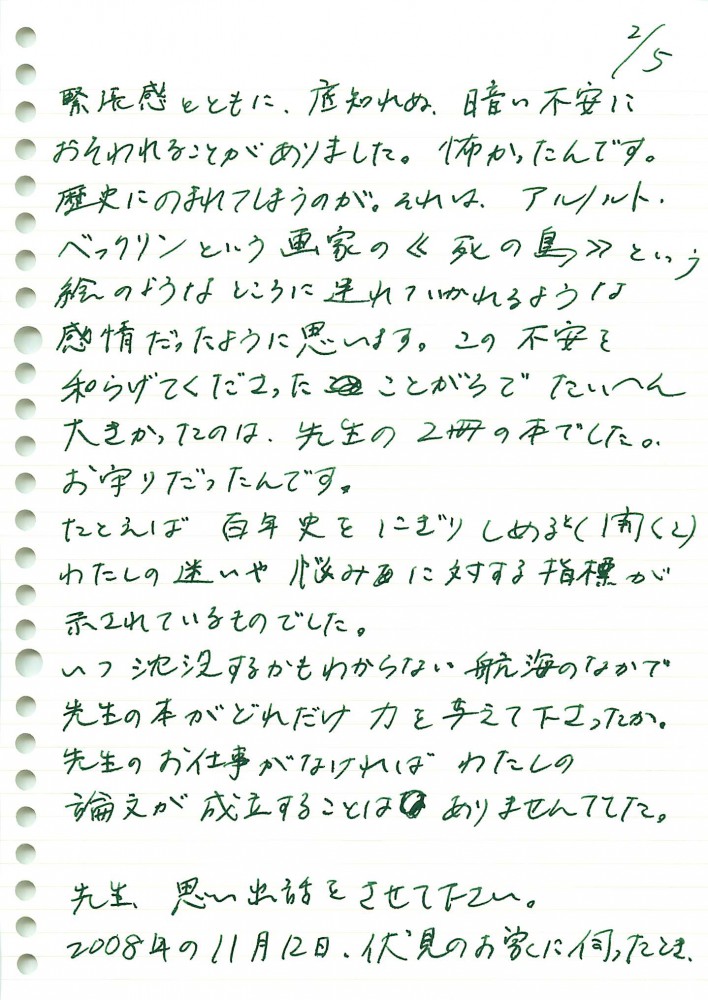 2/5
緊張感とともに、底知れぬ、暗い不安に
おそわれることがありました。怖かったんです。
歴史にのまれてしまうのが。それは、アルノルト・
ベックリンという画家の《死の島》という
絵のようなところに連れていかれるような
感情だったように思います。この不安を
和らげてくださった ことがらで たいへん
大きかったのは、先生の2冊の本でした。
お守りだったんです。
たとえば 百年史を にぎりしめると(開くと)
わたしの迷いや 悩み に対する指標が
示されているものでした。
いつ沈没するかもわからない航海のなかで
先生の本がどれだけ力を与えて下さったか。
先生のお仕事がなければ わたしの
論文が成立することは ありませんでした。
先生、思い出話をさせて下さい。
2008年の11月12日、伏見のお家に伺ったとき、